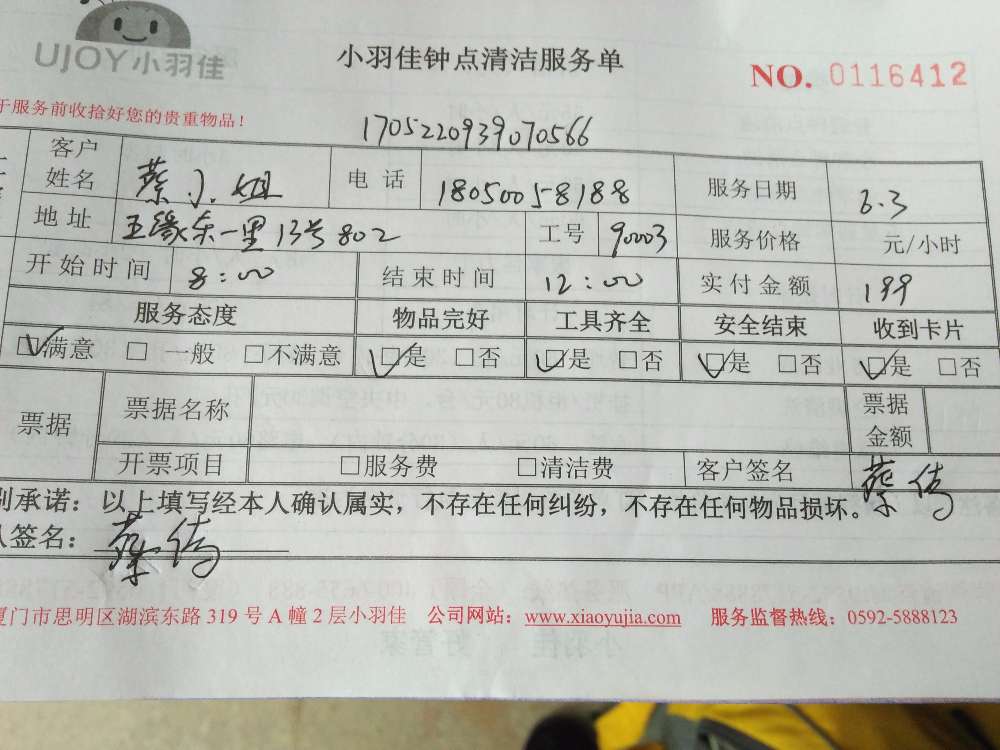 UJOY小羽佳
小羽佳钟点清洁服务单
NO. 0116412
于服务前收拾好您的贵重物品!
1705220939070566
客户姓名 蔡小姐 电话 18050058188 服务日期 6.3
地址 五缘东一里13号802 工号 90003 服务价格 元/小时
开始时间 8:00 结束时间 12:00 实付金额 199
服务态度 物品完好 工具齐全 安全结束 收到卡片
☑满意 □一般 □不满意 ☑是 □否 ☑是 □否 ☑是 □否 ☑是 □否
票据 票据名称 票据金额
开票项目 □服务费 □清洁费 客户签名 蔡倩
承诺：以上填写经本人确认属实，不存在任何纠纷，不存在任何物品损坏。
签名：蔡倩
厦门市思明区湖滨东路319号A幢2层小羽佳 公司网站：www.xiaoyujia.com 服务监督热线：0592-5888123